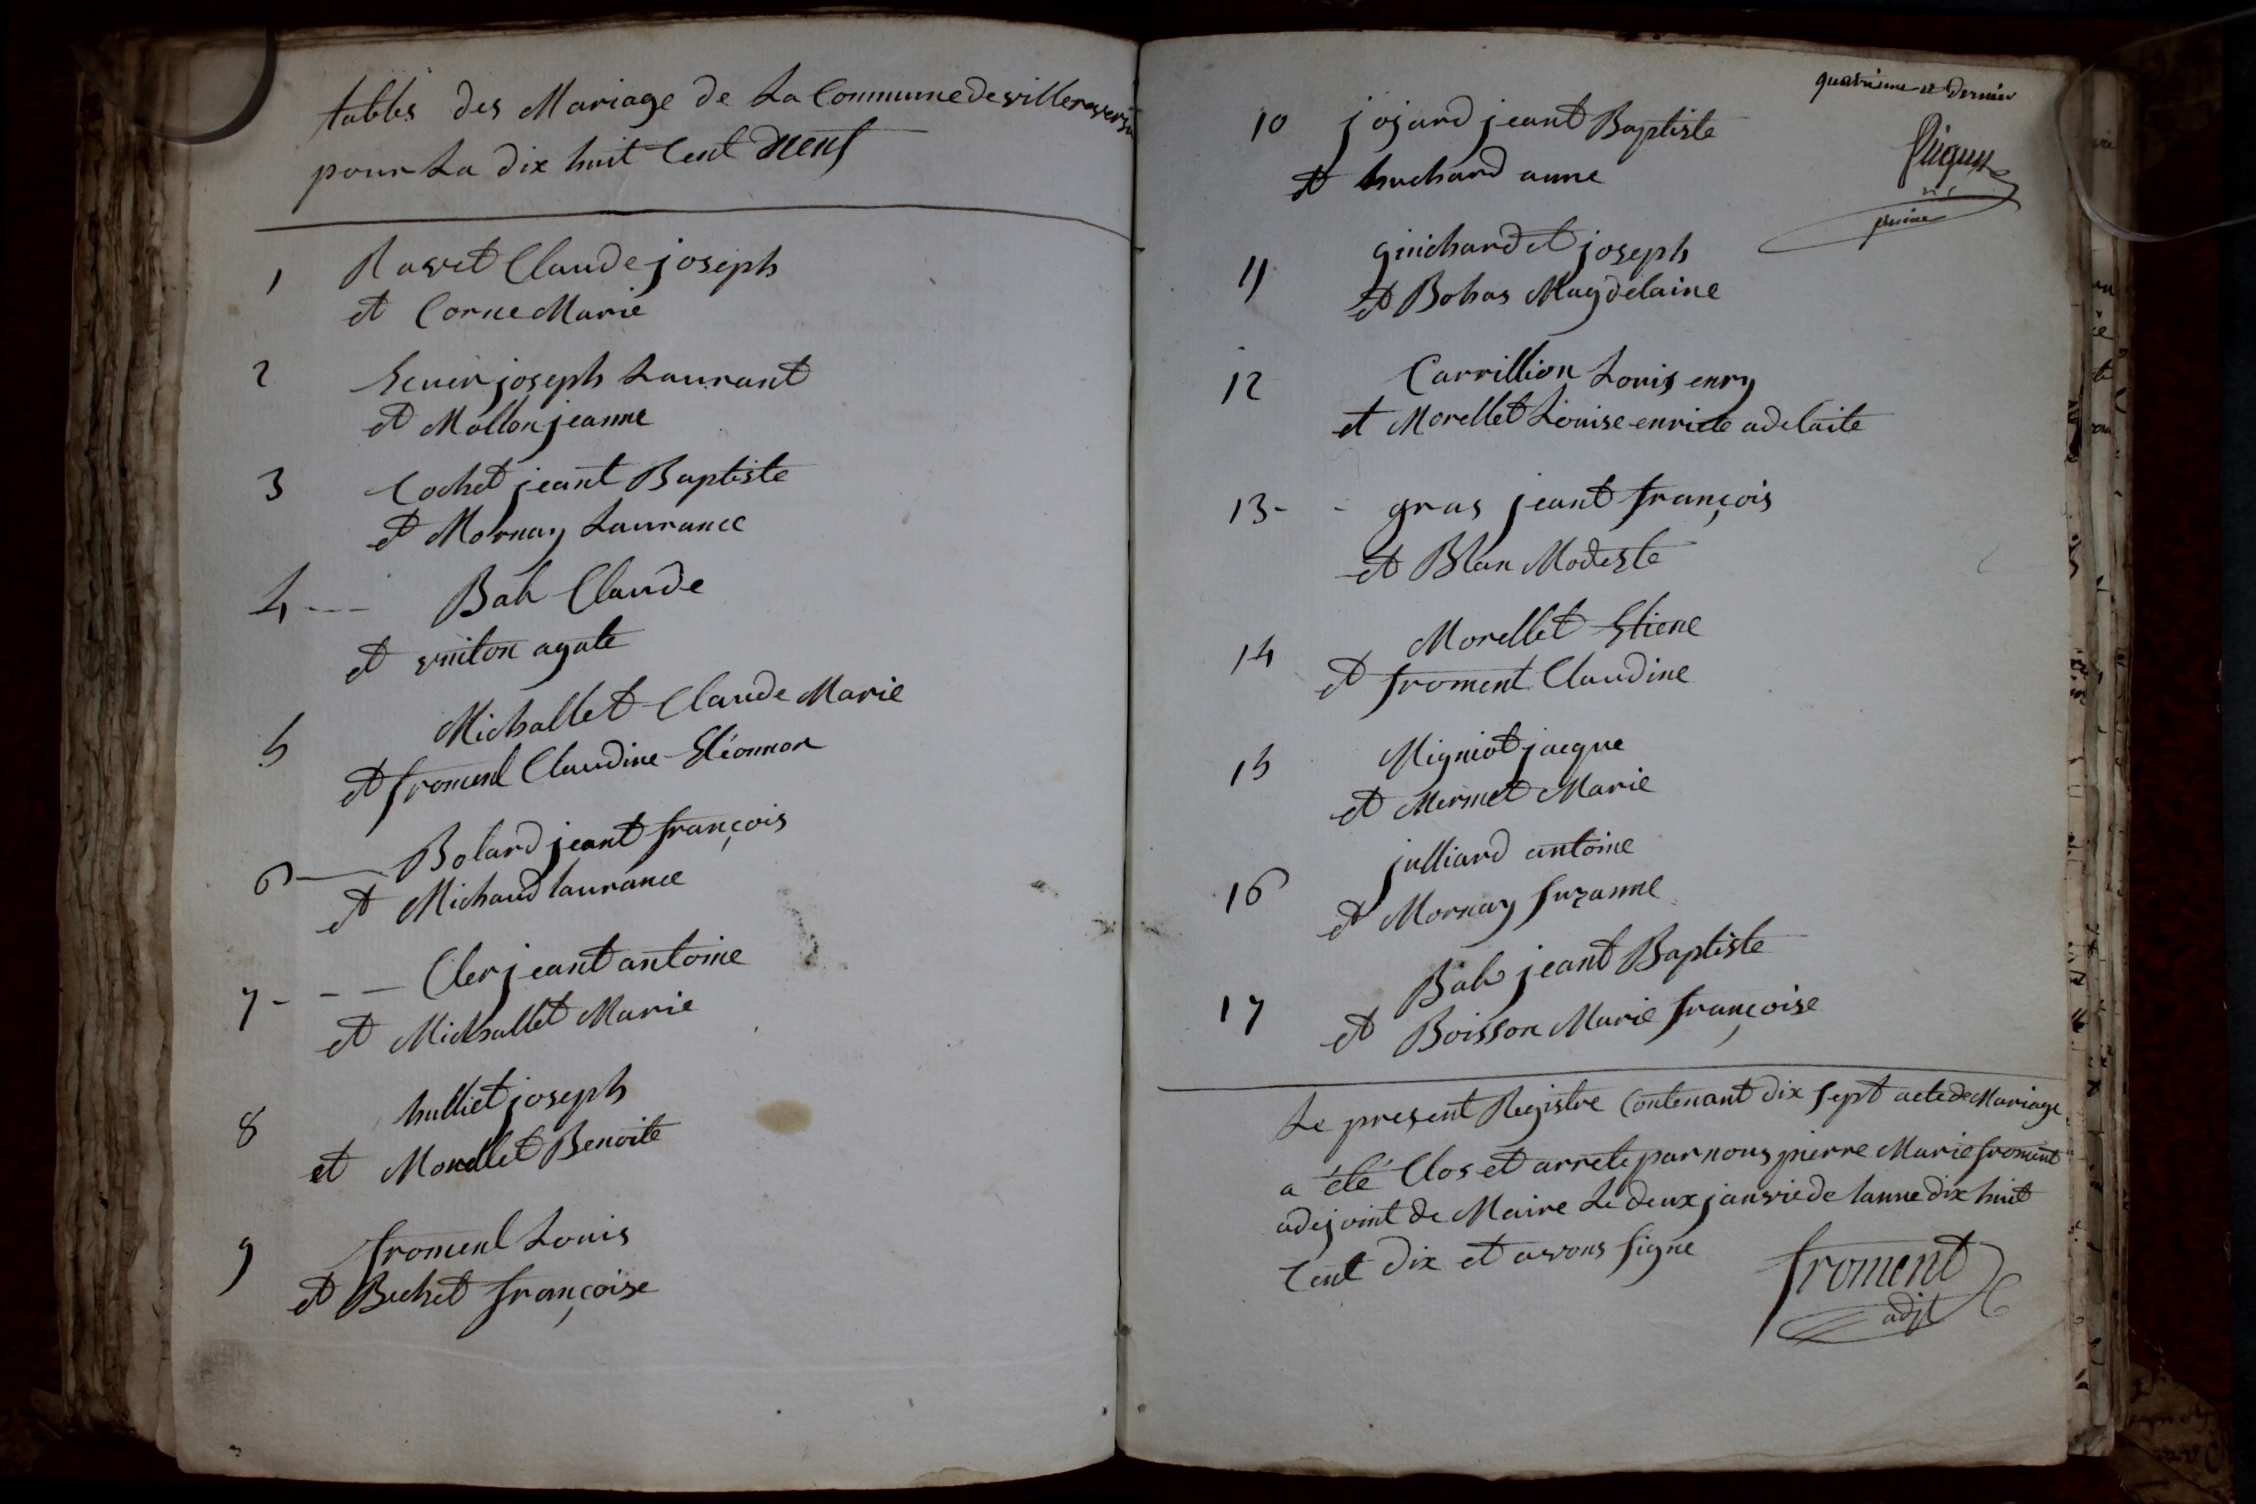 tables des Mariage de La Commune de villereversur
pour La dix huit Cent neuf
1 Ravet Claude joseph
et Corne Marie
2 joseph Laurant
et Mollon jeanne
3 Cochet jeant Baptiste
et Mornay Laurance
4 --- Bah Claude
et vuiton agate
5 Michallet Claude Marie
et froment Claudine Eléonnor
6 — Bolard jeant françois
et Michaud laurance
7 - - — Cler jeant antoine
et Michallet Marie
8 hulliet joseph
et Morellet Benoite
9 froment Louis
et Buchet françoise
quatrieme et dernier
10 jojard jeant Baptiste
et huchard anne
11 guichardet joseph
et Bohas Magdelaine
12 Carrillion Louis enry
et Morellet Louise enriete adelaite
13 - - gras jeant françois
et Blan Modeste
14 Morellet Etiene
et froment Claudine
15 Migniot jacque
et Mermet Marie
16 julliard antoine
et Mornay Suzanne
17 Bah jeant Baptiste
et Boisson Marie françoise
Le present Registre Contenant dix sept acte de Mariage
a été Clos et arrete par nous pierre Marie froment
adejoint de Maire Le deux janvie de lanne dix huit
Cent dix et avons signe
froment
adjt